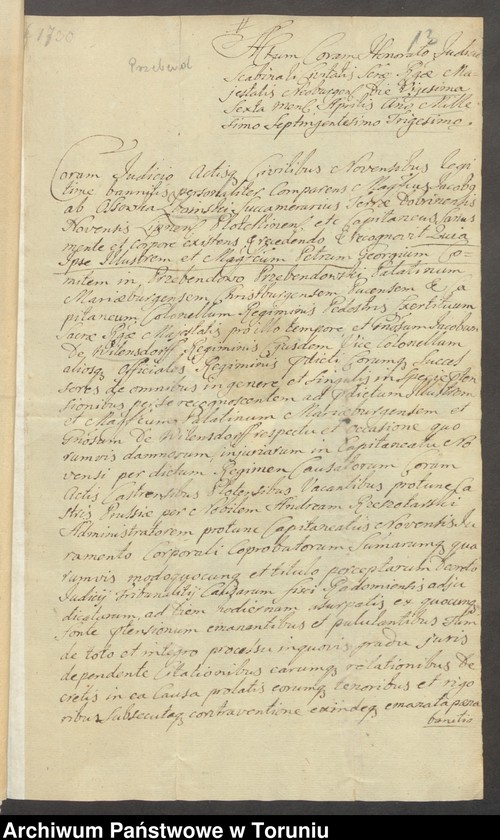 1730
13
Przebend
Actum Coram Honorato Judicio
Scabinali Civitatis Scræ Rgæ Ma-
jestatis Neoburgen Die Vigesima
Sexta mens Aprilis Ano Mille
simo Septingentesimo Trigesimo.
Coram Judicio Actisq Civilibus Novensibus legi
time bannitis personaliter Comparens Magfcus Jacobg
ab Ossowka Succamerarius Terræ Dobrinensis
Novensis Plotellionen, etc Capitaneus, Sanus
mente et Corpore existens recedendo recognovit Quia
Ipse Illustrem et Magfcum Petrum Georgium Co-
mitem in Przebendowo Przebendowski Palatinum
Mariæburgensem Christburgensem Pucensem & a
pitaneum Colonellum Regiminis Pedestris Exercituum
Sacræ Rgæ Majestatis pro illo tempore et Gnosum Jacobum
De Wilensdorff Regiminis Ejusdem Vice Colonellum
aliosq Officiales Regiminis pdicti Eorumq Succes
sores de omnibus in genere et singulis in specie prten
sionibus per se recognoscentem ad pdictum Illustrem
et Magfcum Palatinum Mariæburgensem et
Gnosum De Wilensdorff respectu et occasione quo
rumvis damnorum, injuriarum in Capitaneatu No
vensi per dictum Regimen Causatorum Coram
Actis Castrensibus Vacantibus protunc Ca
stris Prussiæ per Nobilem Andream
Administratorem protunc Capitaneatus Novensis Ju
ramento Corporali Coprobatorum Sumarumq qua
rumvis modoquocunq et titulo perceptarum Decreto
Judicij Tribunalitij Causarum fisci Radomiensis adju
dicatarum, ad diem hodiernam usurpatis ex quocunq
fonte prtensionum emanantibus et pululantibus
de toto et integro processu inquovis gradu juris
dependente Citationibus earumq relationibus De
cretis in ea Causa prolatis eorumq tenoribus et rigo
ribus Subsecutaq contraventione exindeq emanata pœna
bannitio
Archiwum Państwowe w Toruniu